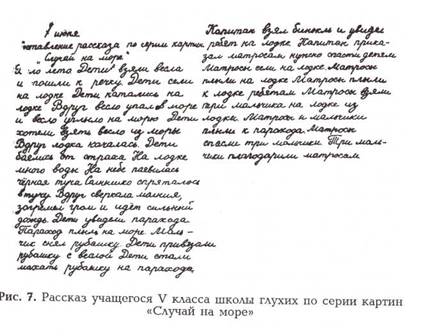 8 июня
Составление рассказа по серии картин
"Случай на море"
Я ло лето Дети взяли весла
и пошли к речку Дети сели
на лодке Дети катались на
лодке Вдруг весло упало в море
и весло уплыло на море Дети
хотели взять весло из моры
Вдруг лодка качалась. Дети
баялись от страха На лодке
много воды На небе паявилась
чёрная туча спряталось
в тучу Вдруг сверкала малния,
гром и идёт сильний
дождь Дети увидели парахода
Пароход плыл на море
чик снял рубашку Дети привязали
рубашку с веслой Дети стали
махать рубашку на парахода,
Капитан взял бинокль и увидел
ребят на лодке Капитан прика-
зал матросам нужно спасти детей
Матросы сели на лодке Матросы
плыли на лодке Матросы плыли
к лодке ребятам Матросы взяли
три мальчика на лодке из
лодки Матросы и мальчики
плыли к парохода Матросы
спасли три мальчики Три маль-
чики благодарили матросам
Рис. 7. Рассказ учащегося V класса школы глухих по серии картин
«Случай на море»